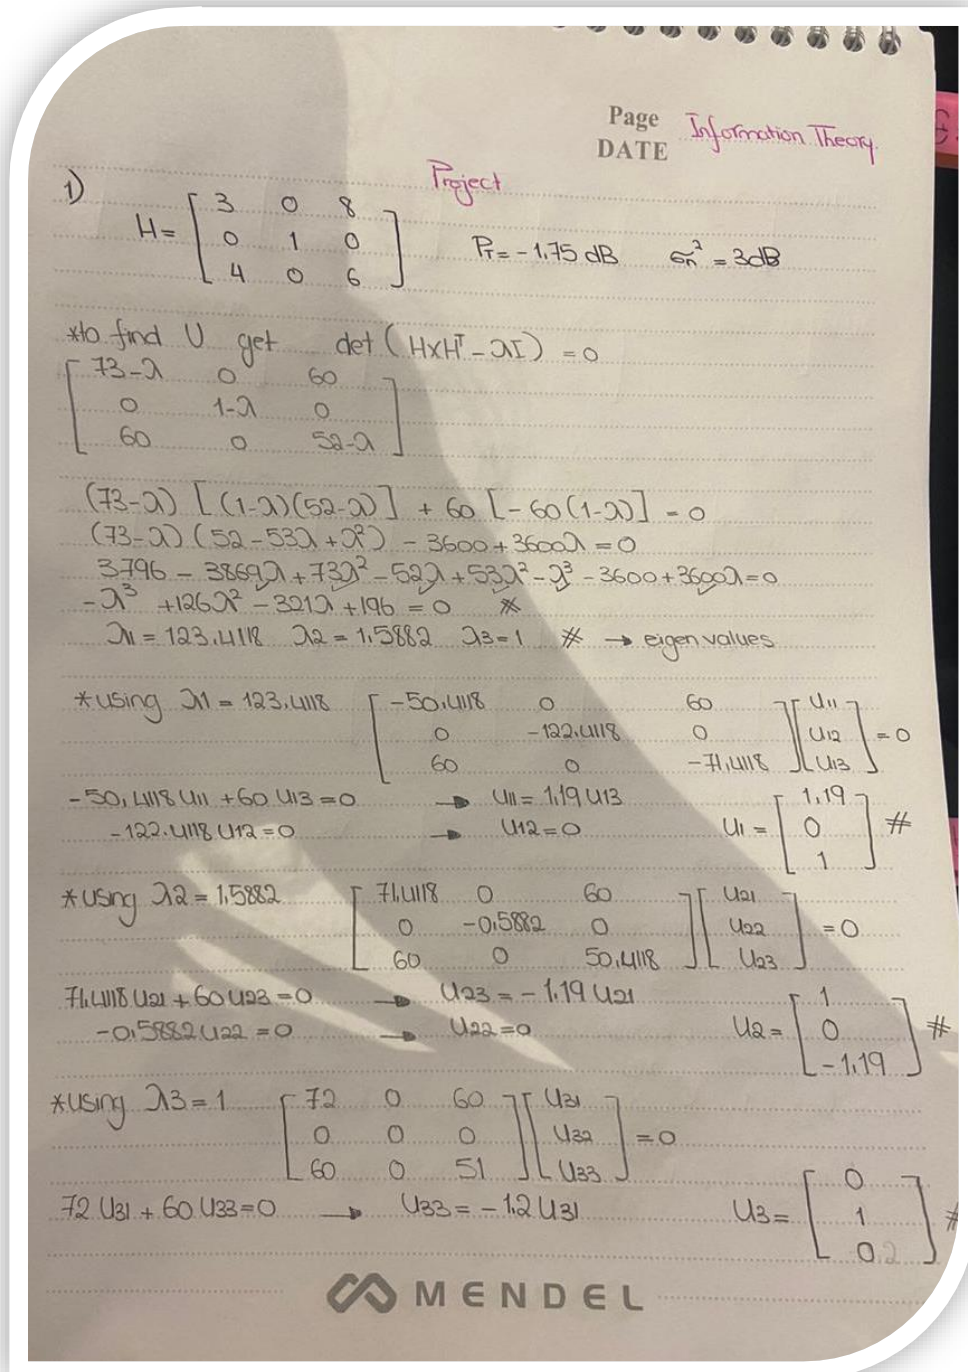 Page
DATE
Information Theory
Project
1)
H = [ 3 0 8
0 1 0
4 0 6 ]
P_T = -1.75 dB σn² = 3dB
*to find U get det (H×Hᵀ - λI) = 0
[ 73-λ 0 60
0 1-λ 0
60 0 52-λ ]
(73-λ) [(1-λ)(52-λ)] + 60 [-60(1-λ)] = 0
(73-λ) (52-53λ+λ²) - 3600+3600λ = 0
3796 - 3869λ + 73λ² - 52λ + 53λ² - λ³ - 3600 + 3600λ = 0
-λ³ + 126λ² - 321λ + 196 = 0 *
λ1 = 123.4118 λ2 = 1.5882 λ3 = 1 # → eigen values
*using λ1 = 123.4118
[ -50.4118 0 60
0 -122.4118 0
60 0 -71.4118 ] [ U11
U12
U13 ] = 0
-50.4118 U11 + 60 U13 = 0 → U11 = 1.19 U13
-122.4118 U12 = 0 → U12 = 0
U1 = [ 1.19
0
1 ] #
*using λ2 = 1.5882
[ 71.4118 0 60
0 -0.5882 0
60 0 50.4118 ] [ U21
U22
U23 ] = 0
71.4118 U21 + 60 U23 = 0 → U23 = -1.19 U21
-0.5882 U22 = 0 → U22 = 0
U2 = [ 1
0
-1.19 ] #
*using λ3 = 1
[ 72 0 60
0 0 0
60 0 51 ] [ U31
U32
U33 ] = 0
72 U31 + 60 U33 = 0 → U33 = -1.2 U31
U3 = [ 0
1
0 ] #
MENDEL